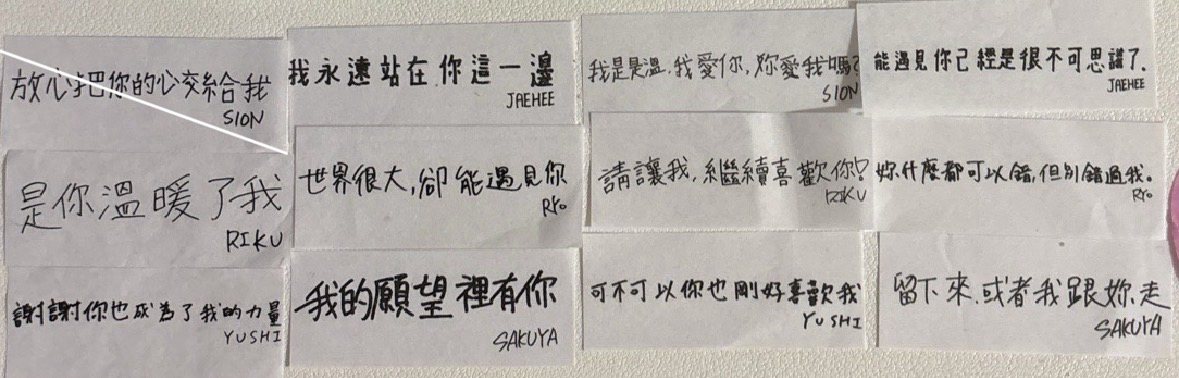 放心把你的心交給我
SION
我永遠站在你這一邊
JAEHEE
我是是溫,我愛你,妳愛我嗎?
SION
能遇見你已經是很不可思議了.
JAEHEE
是你溫暖了我
RIKU
世界很大,卻能遇見你
RYO
請讓我,繼續喜歡你!
RIKU
妳什麼都可以錯,但別錯過我。
RYO
謝謝你也成為了我的力量
YUSHI
我的願望裡有你
SAKUYA
可不可以你也剛好喜歡我
YUSHI
留下來.或者我跟妳走
SAKUYA